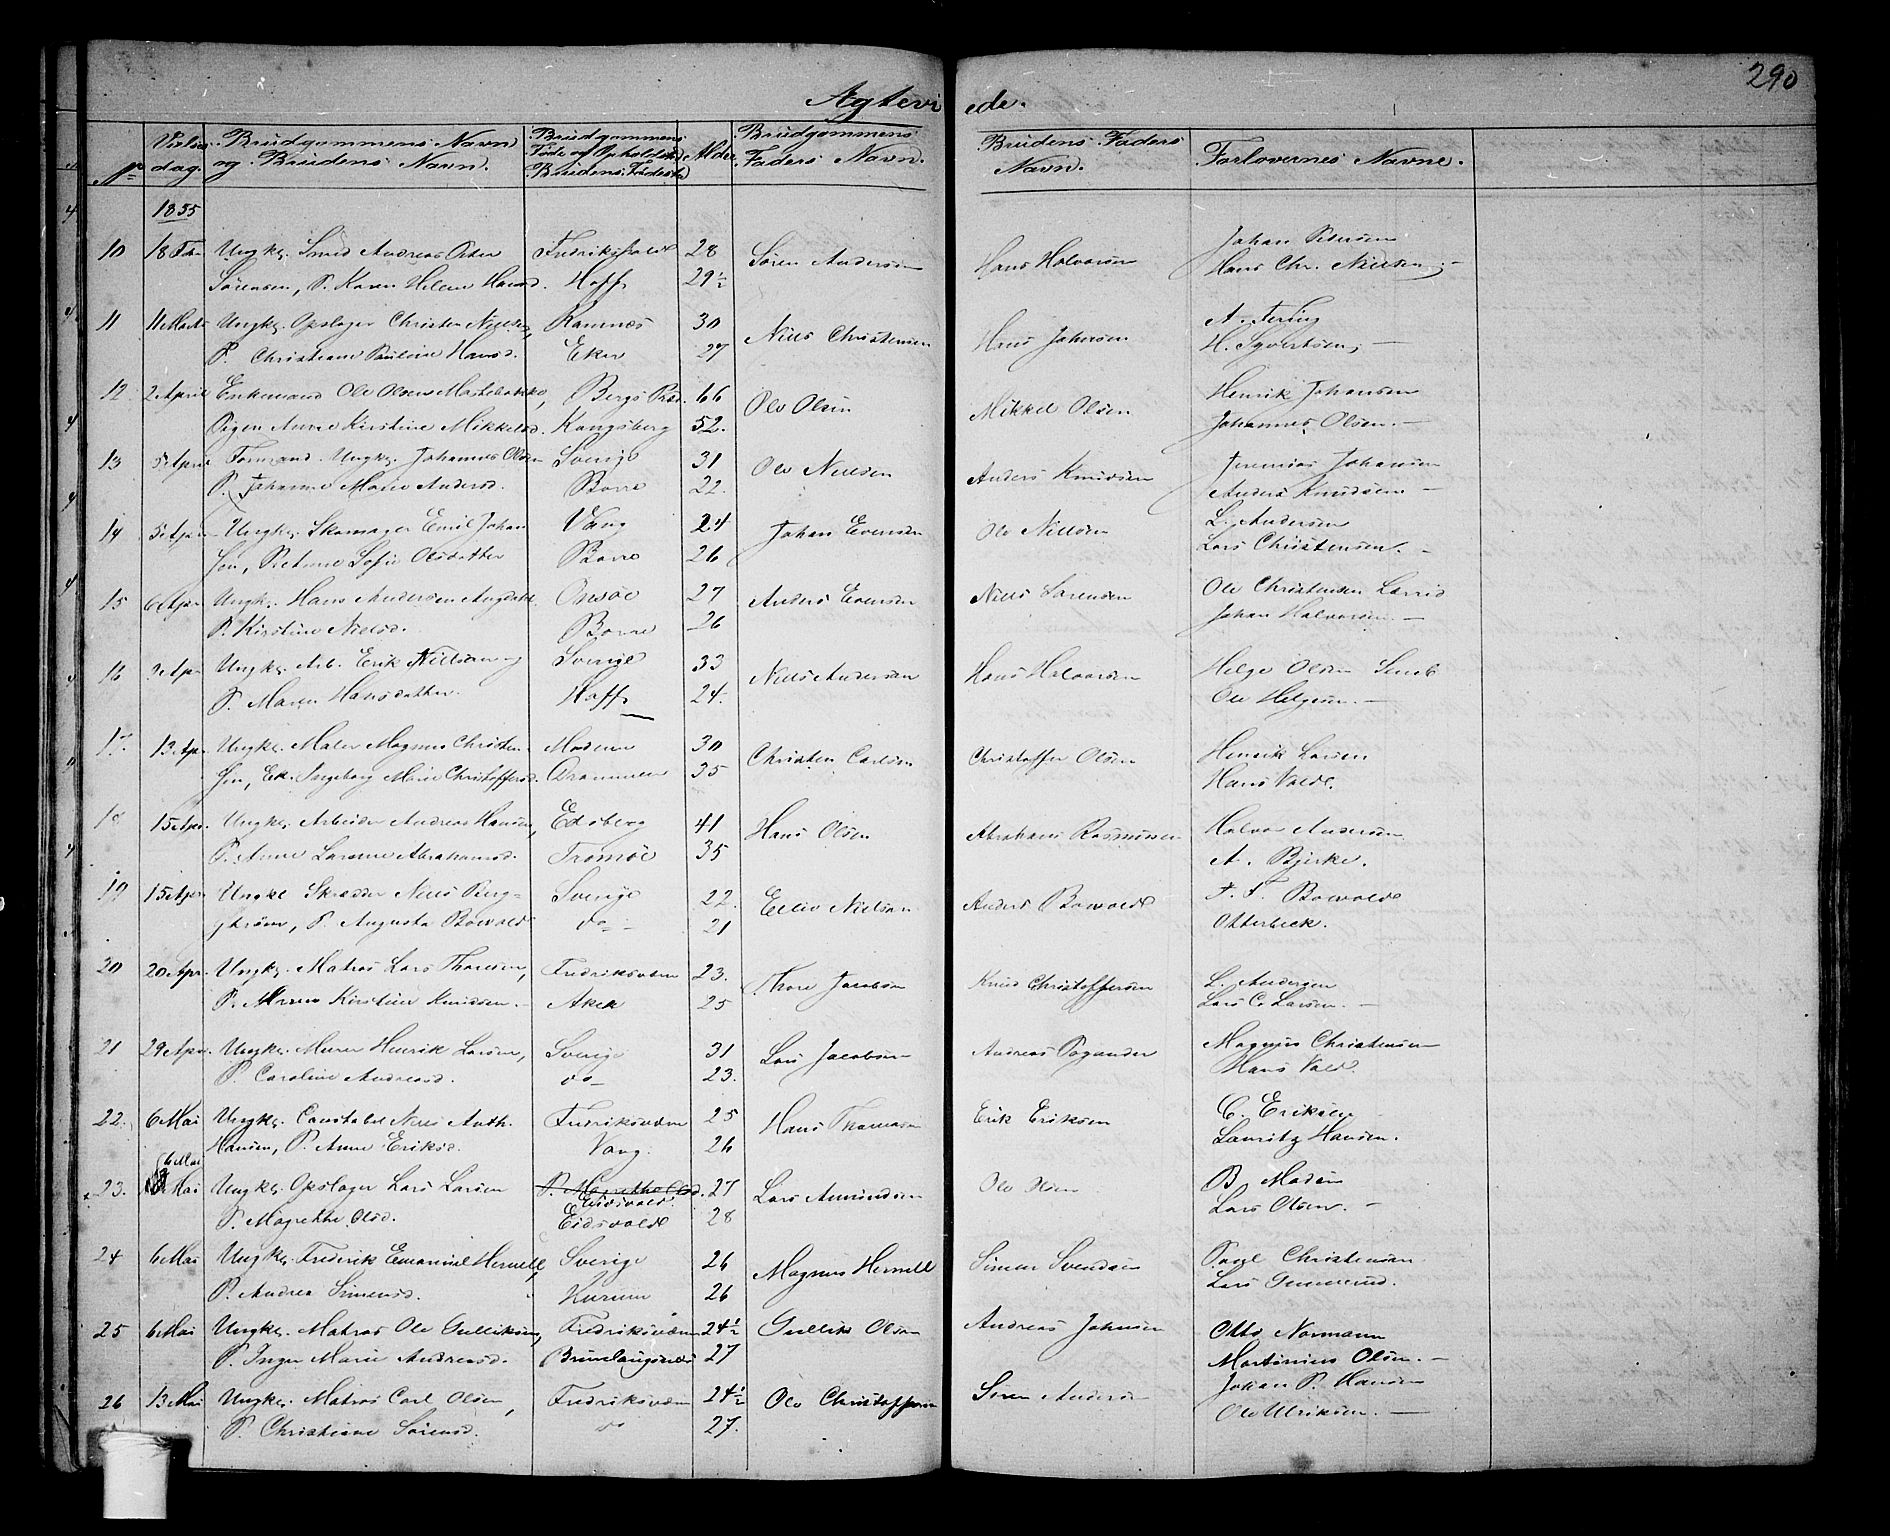 290
Agtevi ede.
No Vielses dag. Brudgommens Navn og Brudens Navn. Brudgommens Føde og Opholdsted Brudens Fødested Alder Brudgommens Faders Navn. Brudens Faders Navn. Forlovernes Navne.
1855
10 18 Feb Ungk. Smed Andreas Fredrikshald 28 Søren Andersen Hans Halvorsen Johan Pedersen
Sørensen, P. Karen Helene Hansd. Hoff 29½ Hans Chr. Nielsen
11 11 Marts Ungk. Opslager Christen Nielsen, Ramnæs 30 Niels Christensen Hans Johnsen
P. Christiane Pauline Hansd. Eker 27 H. Syvertsen
12 2 April Enkemand Ole Olsen 66 Ole Olsen Mikkel Olsen Henrik Johansen
Pigen Anne Kirstine Mikkelsd. Kongsberg 52. Johannes Olsen.
13 5 April Formand. Ungk. Johannes Olsen Sverige 31 Ole Nielsen Anders Knudsen Jeremias Johansen
P. Johanne Marie Andersd. Borre 22. Anders Knudsen.
14 5 Apr Ungk. Skomager Emil Johan Vang 24 Johan Evensen Ole Nielsen L. Andersen
sen, Sofie Olsdatter Borre 26 Lars Christensen.
15 6 Apr Ungk. Hans Andersen Onsøe 27 Anders Evensen Niels Sørensen Ole Christensen
P. Kirstine Nielsd. Borre 26 Johan Halvorsen.
16 Apr Ungk. Arb. Erik Nielsen Sverige 33 Niels Andersen Hans Halvorsen Helge Olsen
P. Maren Hansdatter. Hoff 24. Ole Helgesen.
17. 13 Apr. Ungk. Maler Magnus Christen- 30 Christen Carlsen Christoffer Olsen Henrik Larsen
sen, Ingeborg Marie Christoffersd. Drammen 35 Hans Vold.
18 15 Apr. Ungk. Arbeider Andreas Hansen, Edsberg 41 Hans Olsen Abraham Rasmussen Halvor Andersen
P. Anne Abrahamsd. Tromöe 35 A. Bjerke.
19 15 Apr Ungkl Skrædder Niels Berg- Sverige 22. Nielsen Anders Bowald F. Bowald
strøm, P. Augusta Bowald do 21 Otterbeck.
20 20 Apr. Ungk. Matros Lars Thoresen, Fredriksværn 23. Thore Jacobsen Knud Christoffersen L. Andersen
P. Kirstine Knudsen. Aker 25 Lars C. Larsen.
21 29 Apr. Ungk. Murer Henrik Larsen, Sverige 31 Lars Jacobsen Andreas Magnus Christensen
P. Caroline Andreasd. do 23. Hans Vold.
22. 6 Mai Ungk. Constabel Niels Anth. Fredriksværn 25 Hans Thomasen Erik Eriksen C. Eriksen
Hansen, P. Anne Eriksd. Vang. 26 Lauritz Hansen.
6 Mai
23. Mai Ungk. Opslager Lars Larsen P. Magrethe Olsd. 27 Lars Amundsen Ole Olsen B. Madsen
P. Magrethe Olsd. Eidsvold.
Eidsvold 28 Lars Olsen.
24 6 Mai Ungk. Frederik Emanuel Hernell, Sverige 26 Magnus Hernell Simen Svendsen Christensen
P. Andrea Simensd. Hurum 26 Lars
25 6 Mai Ungk. Matros Ole Gulliksen, Fredriksværn 24½ Gullik Olsen Andreas Johnsen Otto Normann
P. Inger Marie Andreasd. Brunlaugsnæs 27 Martinius Olsen.
26 13 Mai Ungk. Matros Carl Olsen, Fredriksværn 24½ Ole Christoffersen Søren Andersen Johan P. Hansen
P. Christiane Sørensd. do 27. Ole Ulriksen.